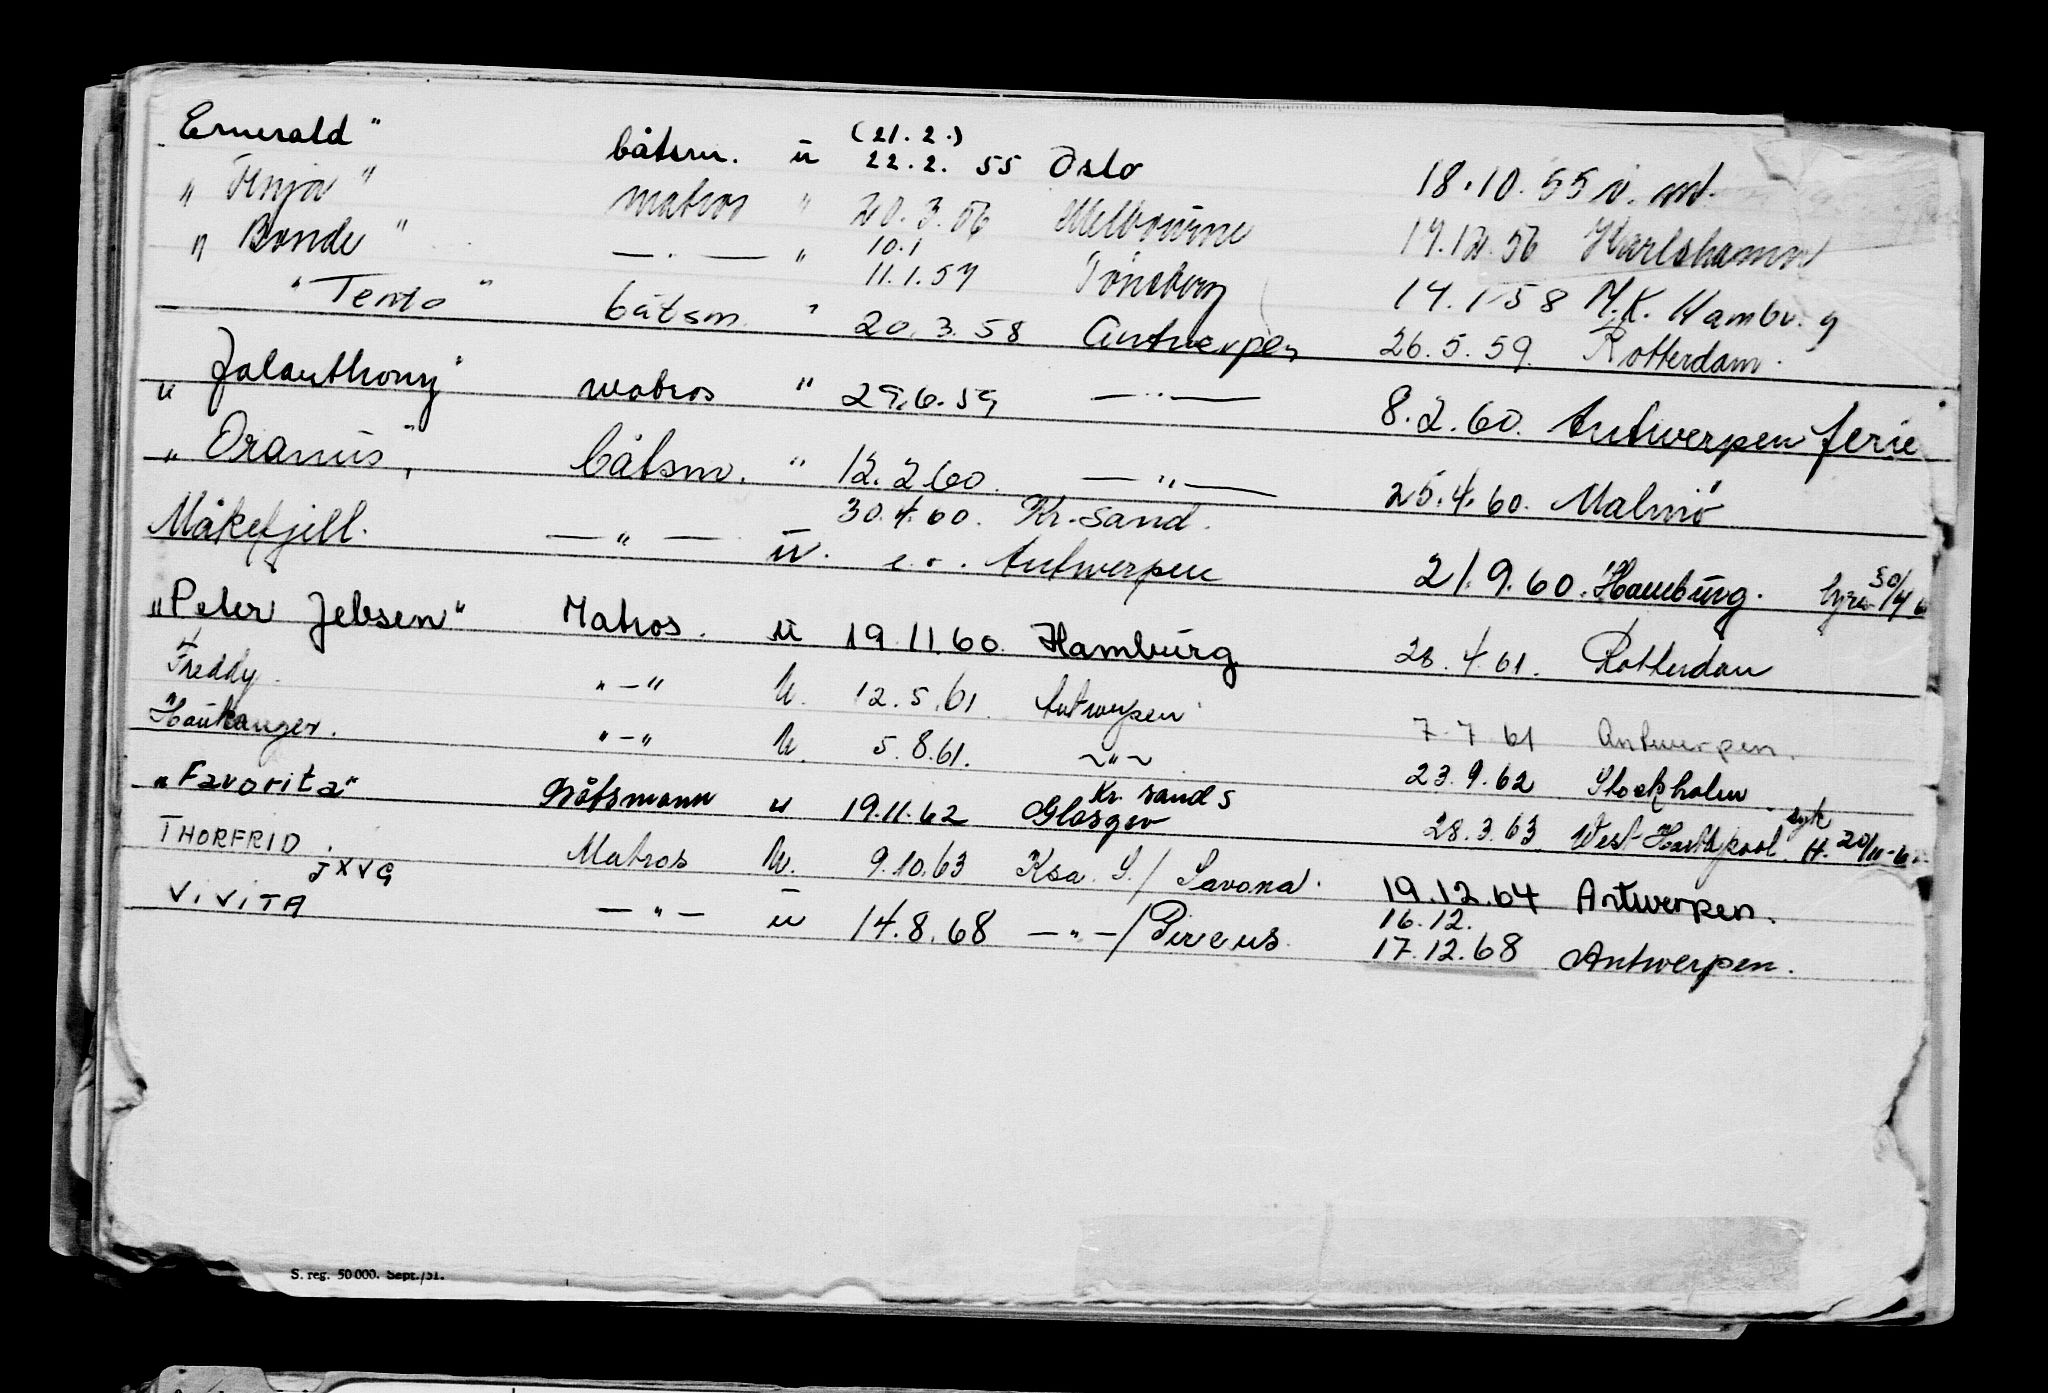 Emerald" båtsm. u (21.2.) 22.2. 55 Oslo 18.10.55
" Fenja" matros " 20.3.56 Melbourne 17.12.56 Karlshamn
" Bonde" — . — " 10.1 11.1.57 Tönsberg 14.1.58 M.K. Hamburg
" Tento " båtsm. " 20.3.58 Antwerpen 26.5.59. Rotterdam.
" Jalanthony" matros " 29.6.59 — " — 8.2.60. Antwerpen ferie
" Oranius", båtsm. " 12.2.60. — " — 25.4.60. Malmö
Måkefjell. — " — u. 30.4.60. Kr.sand. e.o. Antwerpen 21.9.60. Hamburg. hyra 30/4
"Peter Jebsen" Matros. u 19.11.60. Hamburg 28.4.61. Rotterdam
Freddy. "—" u. 12.5.61. Antwerpen 7.7.61 Antwerpen.
Haukanger. "—" u. 5.8.61. ~"~ 23.9.62 Stockholm
"Favorita" Båtsmann u 19.11.62 Kr.sand S Glasgow 28.3.63 West Hartlpool. syk H. 20/11-6
THORFRID. Matros u. 9.10.63 Ksa. S./ Savona. 19.12.64 Antwerpen.
ViViTA JXVG — " — u 14.8.68 — " —/ Pireus. 16.12. 17.12.68 Antwerpen.
S. reg. 50 000. Sept./51.